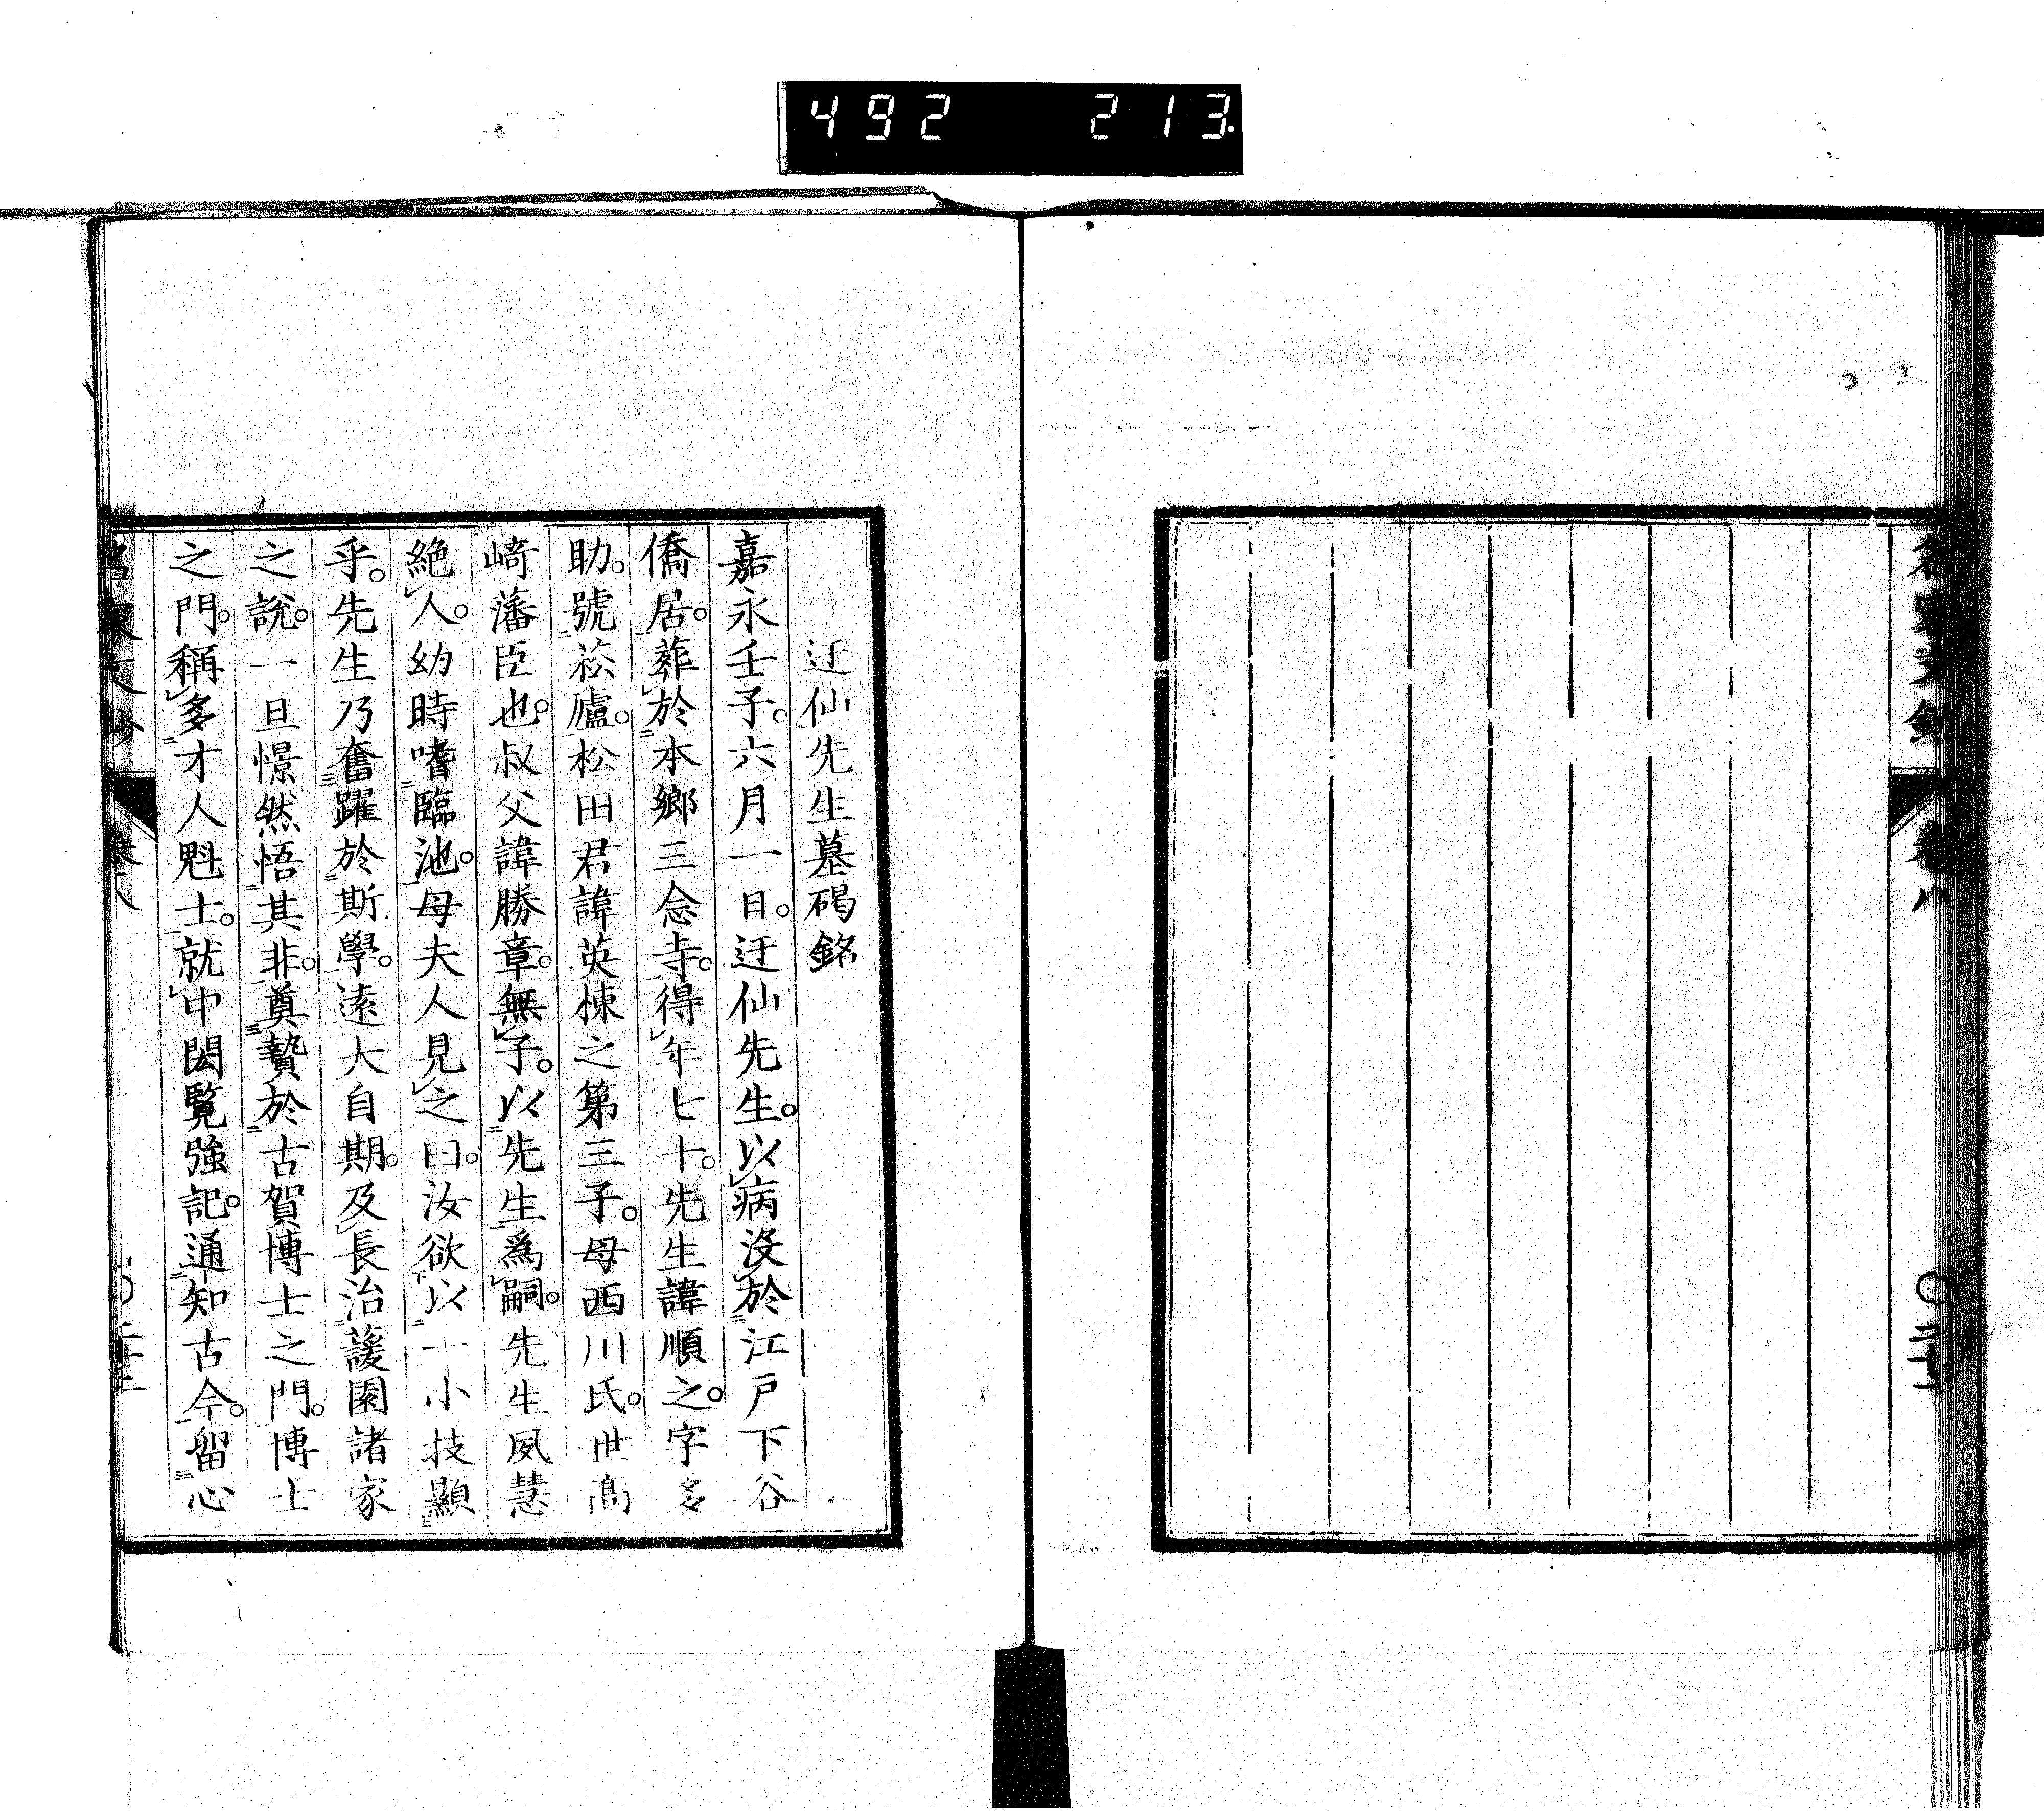 492 213
迂仙先生墓碣銘
嘉永壬子。六月一日。迂仙先生。以病沒於江戸下谷
僑居。葬於本鄉三念寺。得年七十。先生諱順之。字多
助。號菘廬。松田君諱英棟之第三子。母西川氏。世高
﨑藩臣也。叔父諱勝章。無子。以先生爲嗣。先生夙慧
絶人。幼時嗜臨池。母夫人見之曰。汝欲以一小技顯
乎。先生乃奮躍於斯學。遠大自期。及長治蘐園諸家
之說。一旦憬然悟其非。奠贄於古賀博士之門。博士
之門。稱多才人魁士。就中閎覽強記。通知古今。留心